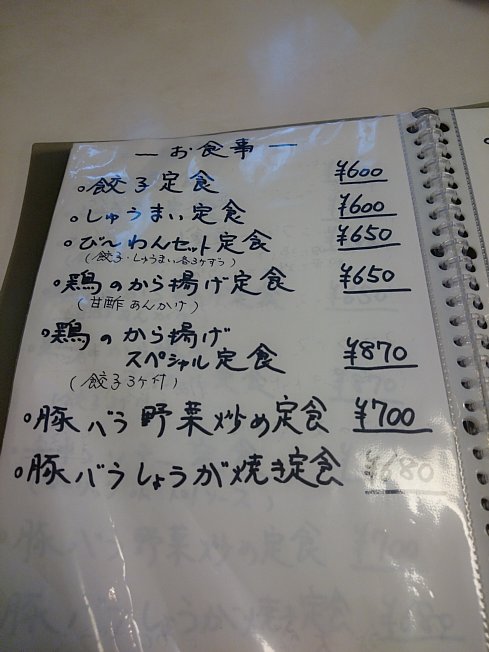 ー お食事 ー
○餃子定食 ¥600
○しゅうまい定食 ¥600
○びーわんセット定食 ¥650
(餃子・しゅうまい各3ケずつ)
○鶏のから揚げ定食 ¥650
(甘酢あんかけ)
○鶏のから揚げ
スペシャル定食 ¥870
(餃子3ケ付)
○豚バラ野菜炒め定食 ¥700
○豚バラしょうが焼き定食 ¥680